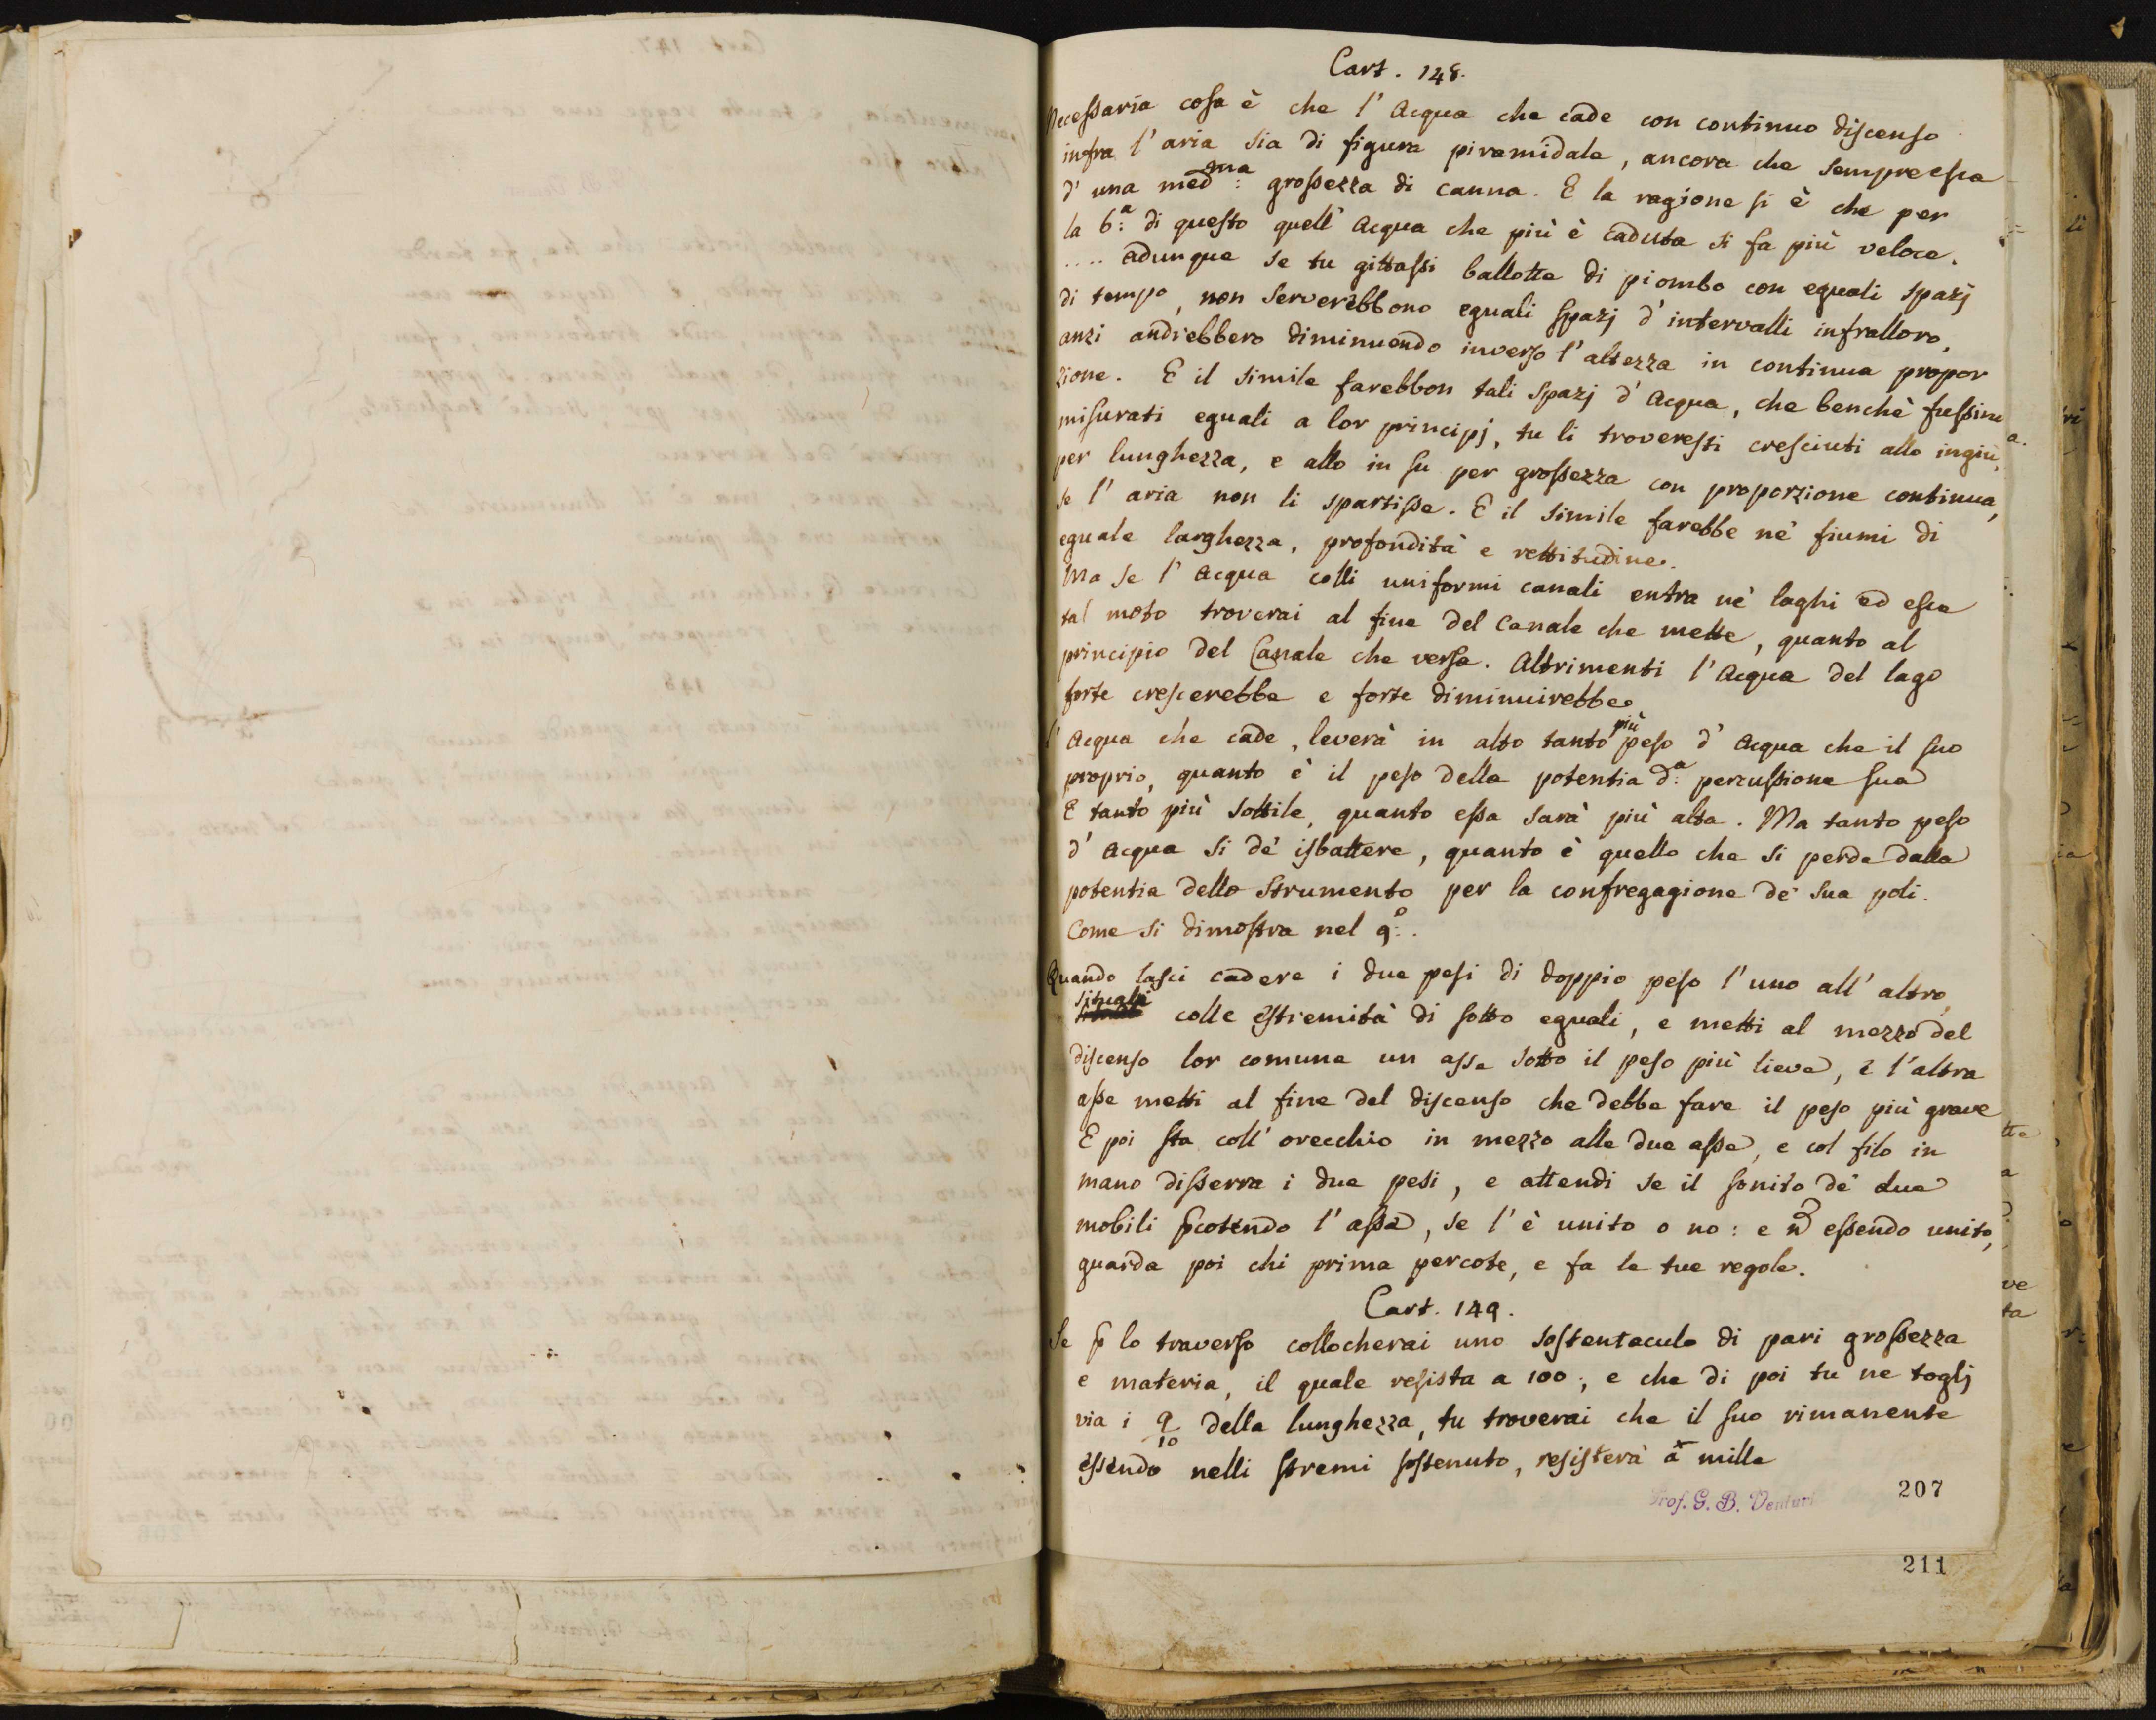 Cart. 148.
Necessaria cosa è che l' Acqua che cade con continuo discenso
infra l' aria sia di figura piramidale, ancora che sempre esca
d' una med:ma grossezza di canna. E la ragione si è che per
la 6:a di questo quell' Acqua che più è caduta si fa più veloce.
.... adunque se tu gittassi ballotte di piombo con eguali spazj
di tempo, non serverebbono eguali spazj d' intervalli infralloro,
anzi andrebbero diminuendo inverso l' altezza in continua propor
zione. E il simile farebbon tali spazj d' Acqua, che benchè fussino
misurati eguali a lor principj, tu li troveresti cresciuti allo ingiù,
per lunghezza, e allo in su per grossezza con proporzione continua,
se l' aria non li spartisse. E il simile farebbe ne' fiumi di
eguale larghezza, profondità e rettitudine.
Ma se l' Acqua colli uniformi canali entra ne' laghi ed esca
tal moto troverai al fine del Canale che mette, quanto al
principio del Canale che versa. Altrimenti l' Acqua del lago
forte crescerebbe e forte diminuirebbe.
l' Acqua che cade, leverà in alto tanto più peso d' Acqua che il suo
proprio, quanto è il peso della potentia d:a percussione sua
E tanto più sottile, quanto essa sarà più alta. Ma tanto peso
d' Acqua si de' isbattere, quanto è quello che si perde dalla
potentia dello strumento per la confregagione de' sua poli.
Come si dimostra nel 9:o.
Quando lasci cadere i due pesi di doppio peso l' uno all' altro,
situali colle estremità di sotto eguali, e metti al mezzo del
discenso lor comune un asse sotto il peso più lieve, e l' altra
asse metti al fine del discenso che debbe fare il peso più grave
E poi sta coll' orecchio in mezzo alle due asse, e col filo in
mano disserra i due pesi, e attendi se il sonito de' due
mobili pcotendo l' asse, se l' è unito o no: e n essendo unito,
guarda poi chi prima percote, e fa le tue regole.
Cart. 149.
Se p lo traverso collocherai uno sostentaculo di pari grossezza
e materia, il quale resista a 100; e che di poi tu ne toglj
via i 9/10 della lunghezza, tu troverai che il suo rimanente
essendo nelli stremi sostenuto, resisterà a mille
207
Prof. G. B. Venturi
211